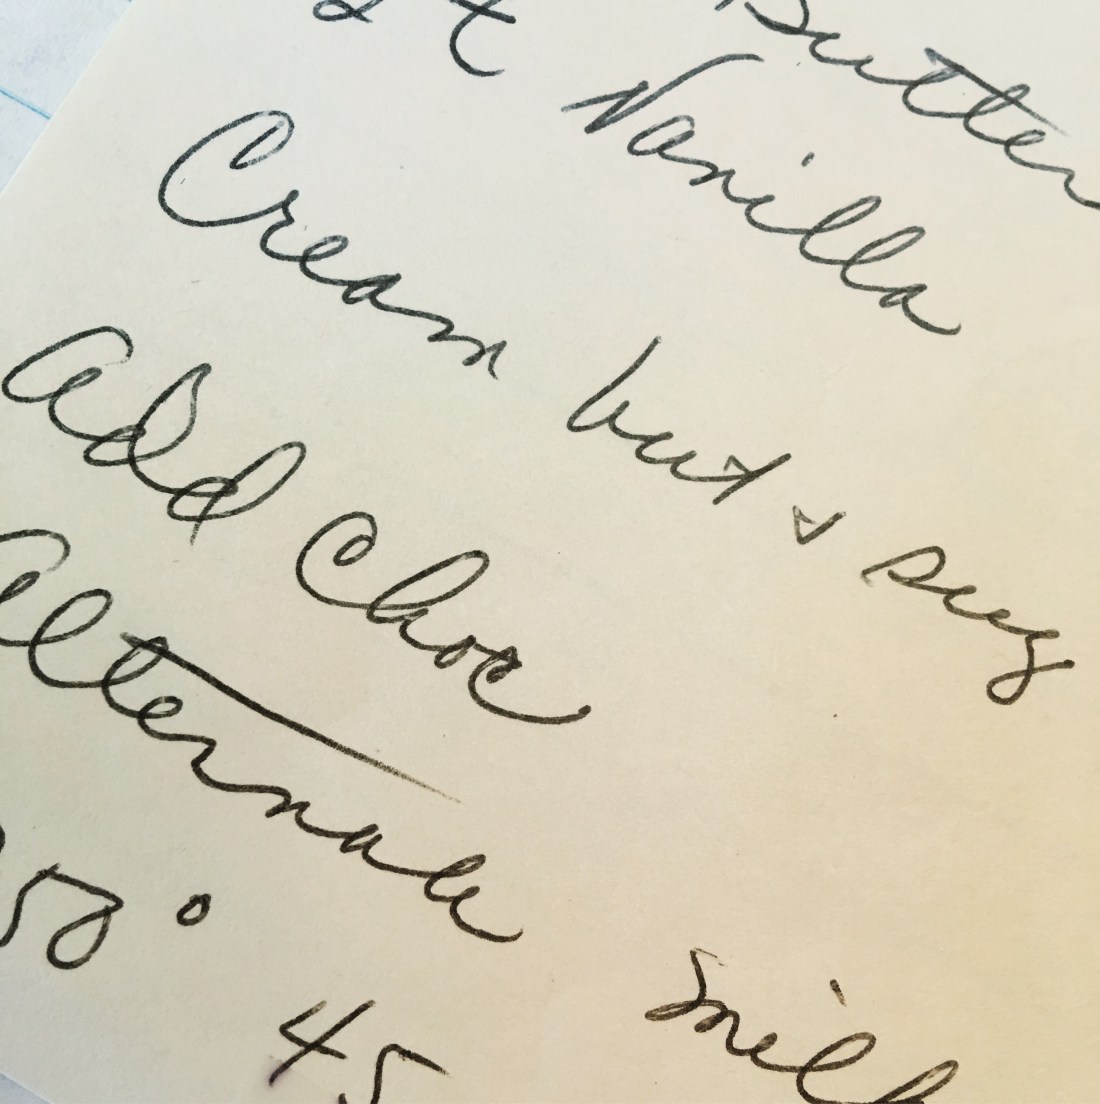 Butter
Vanilla
Cream but + sug
add choc
alternate milk
50°
45